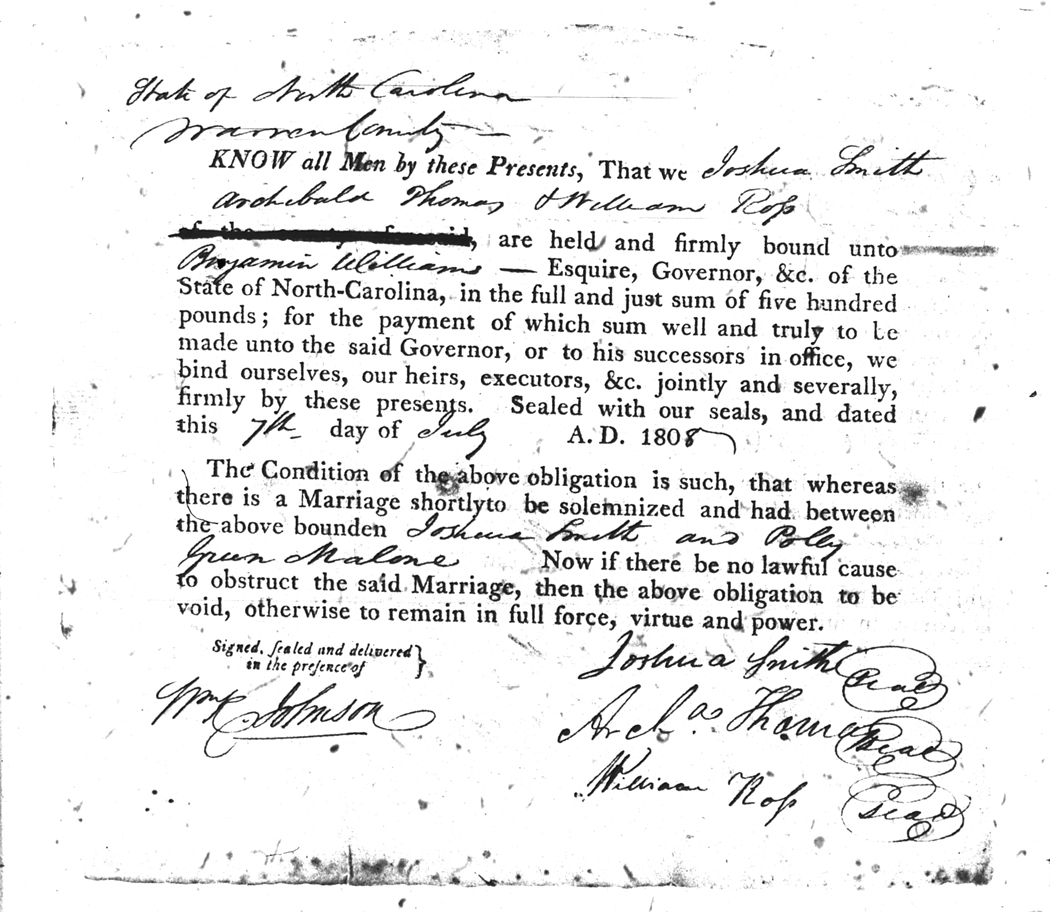 State of North Carolina
Warren County —
KNOW all Men by these Presents, That we Joshua Smith
Archibald Thomas & William Roſs
of the county aforesaid, are held and firmly bound unto
Benjamin Williams — Esquire, Governor, &c. of the
State of North-Carolina, in the full and just sum of five hundred
pounds; for the payment of which sum well and truly to be
made unto the said Governor, or to his successors in office, we
bind ourselves, our heirs, executors, &c. jointly and severally,
firmly by these presents. Sealed with our seals, and dated
this 7th day of July A. D. 1808
The Condition of the above obligation is such, that whereas
there is a Marriage shortlyto be solemnized and had between
the above bounden Joshua Smith and Polley
Green Malone Now if there be no lawful cause
to obstruct the said Marriage, then the above obligation to be
void, otherwise to remain in full force, virtue and power.
Signed, ſealed and delivered }
in the preſence of
Joshua Smith Seal
Wm R. Johnson
Archd. Thomas Seal
William Roſs Seal